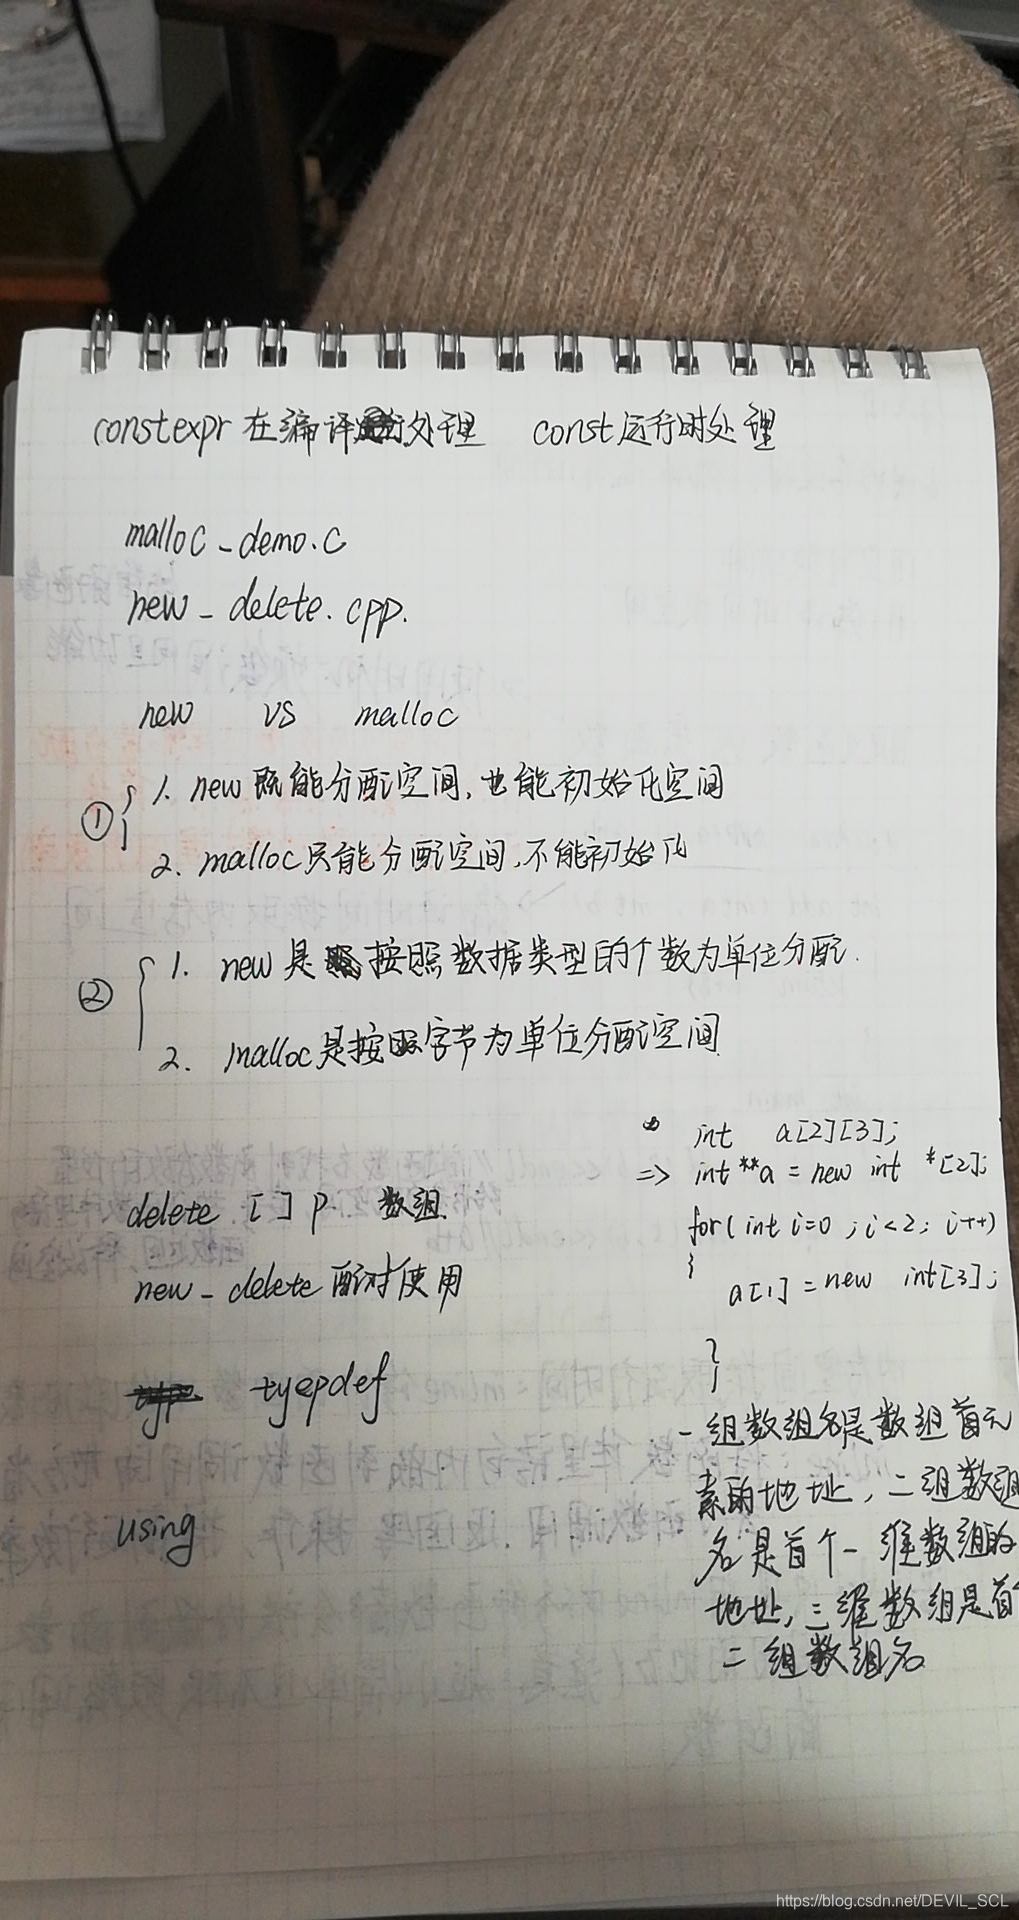 constexpr 在编译处理 const运行时处理
malloc_demo.c
new_delete.cpp.
new vs malloc
① 1. new 既能分配空间, 也能初始化空间
2. malloc只能分配空间,不能初始化
② 1. new是按照数据类型的个数为单位分配.
2. malloc是按照字节为单位分配空间
delete []p. 数组
new_delete 配对使用
tyepdef
using
int a[2][3];
=> int**a = new int *[2];
for(int i=0; i<2; i++)
{
a[i] = new int[3];
}
一组数组名是数组首元
素的地址, 二组数组
名是首个一维数组的
地址, 三维数组是首个
二组数组名
https://blog.csdn.net/DEVIL_SCL